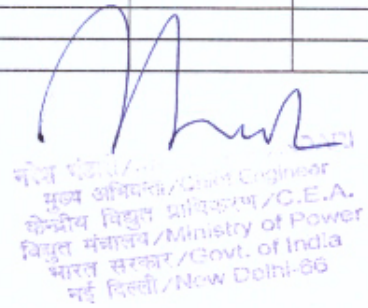 मुख्य अभियन्ता/Chief Engineer
केन्द्रीय विद्युत प्राधिकरण/C.E.A.
विद्युत मंत्रालय/Ministry of Power
भारत सरकार/Govt. of India
नई दिल्ली/New Delhi-66